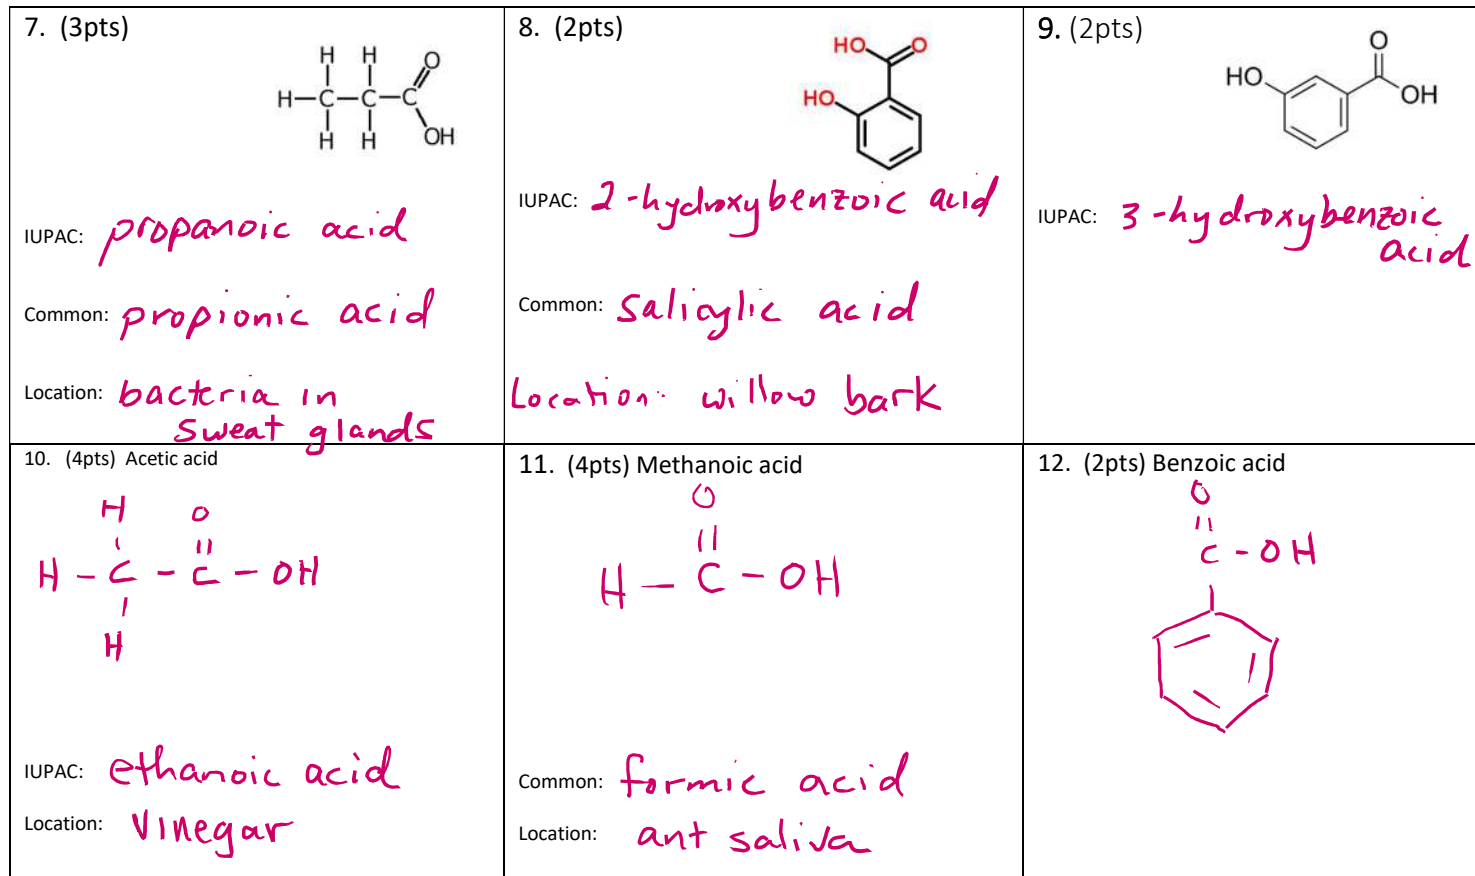 7. (3pts)
H H O
H-C-C-C
H H OH
IUPAC: propanoic acid
Common: propionic acid
Location: bacteria in
sweat glands
8. (2pts)
HO O
HO
IUPAC: 2-hydroxybenzoic acid
Common: salicylic acid
Location: willow bark
9. (2pts)
O
HO
OH
IUPAC: 3-hydroxybenzoic
acid
10. (4pts) Acetic acid
H O
H - C - C - OH
H
IUPAC: ethanoic acid
Location: vinegar
11. (4pts) Methanoic acid
O
H - C - OH
Common: formic acid
Location: ant saliva
12. (2pts) Benzoic acid
O
C - OH